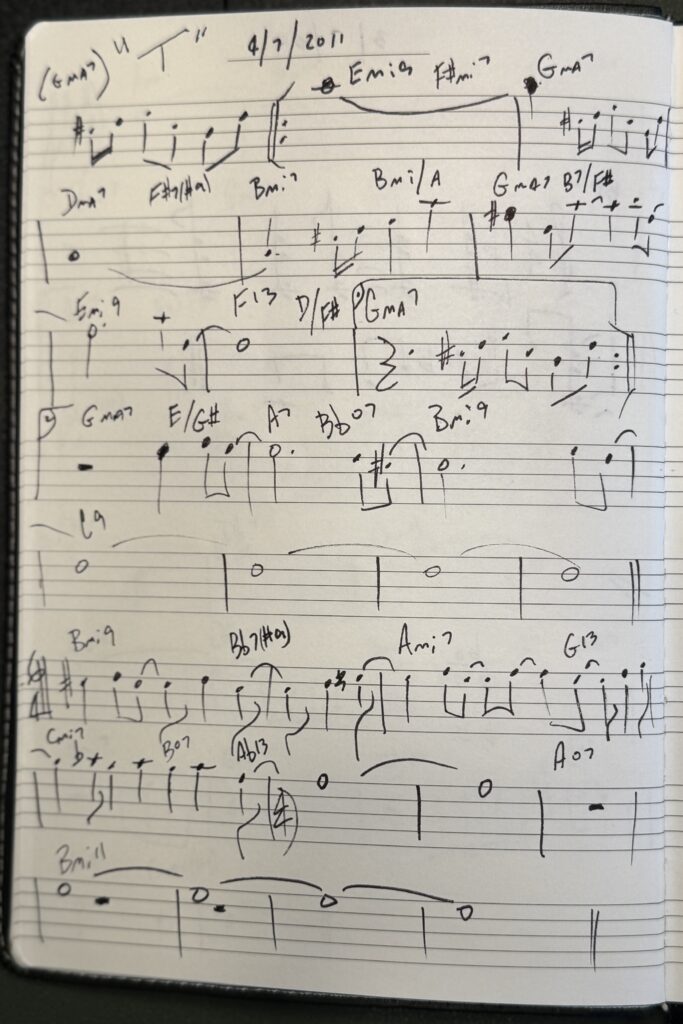 (GMA7) "T" 4/7/2011
Emi9 F#mi7 GMA7
DMA7 F#7(#9) Bmi7 Bmi/A GMA7 B7/F#
Emi9 F13 D/F# GMA7
2 GMA7 E/G# A7 Bb07 Bmi9
C9
Bmi9 Bb7(#9) Ami7 G13
Cmi7 B07 Ab13 A07
4
Bmi11